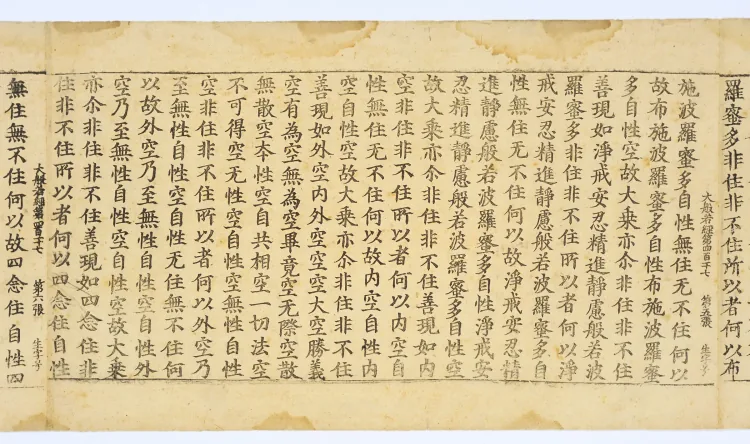 羅蜜多非住非不住所以者何以布
大般若經第四百十七 第五張 生字号
施波羅蜜多自性無住无不住何以
故布施波羅蜜多自性布施波羅蜜
多自性空故大乘亦尒非住非不住
善現如淨戒安忍精進靜慮般若波
羅蜜多非住非不住所以者何以淨
戒安忍精進靜慮般若波羅蜜多自
性無住无不住何以故淨戒安忍精
進靜慮般若波羅蜜多自性淨戒安
忍精進靜慮般若波羅蜜多自性空
故大乘亦尒非住非不住善現如内
空非住非不住所以者何以内空自
性無住无不住何以故内空自性内
空自性空故大乘亦尒非住非不住
善現如外空内外空空空大空勝義
空有為空無為空畢竟空无際空散
無散空本性空自共相空一切法空
不可得空无性空自性空無性自性
空非住非不住所以者何以外空乃
至無性自性空自性无住無不住何
以故外空乃至無性自性空自性外
空乃至無性自性空自性空故大乘
亦尒非住非不住善現如四念住非
住非不住所以者何以四念住自性
大般若經第四百十七 第六張 生字号
無住無不住何以故四念住自性四